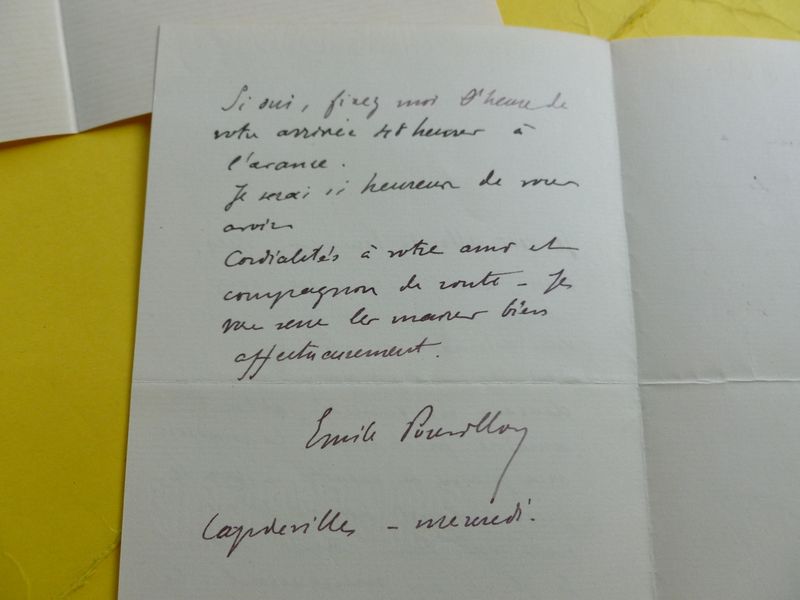 Si oui, fixez moi l'heure de
votre arrivée 48 heures à
l'avance.
Je serai si heureux de vous
avoir
Cordialités à votre ami et
compagnon de route – Je
vous serre les mains bien
affectueusement.
Emile Pouvillon
Capdevilles – mercredi.